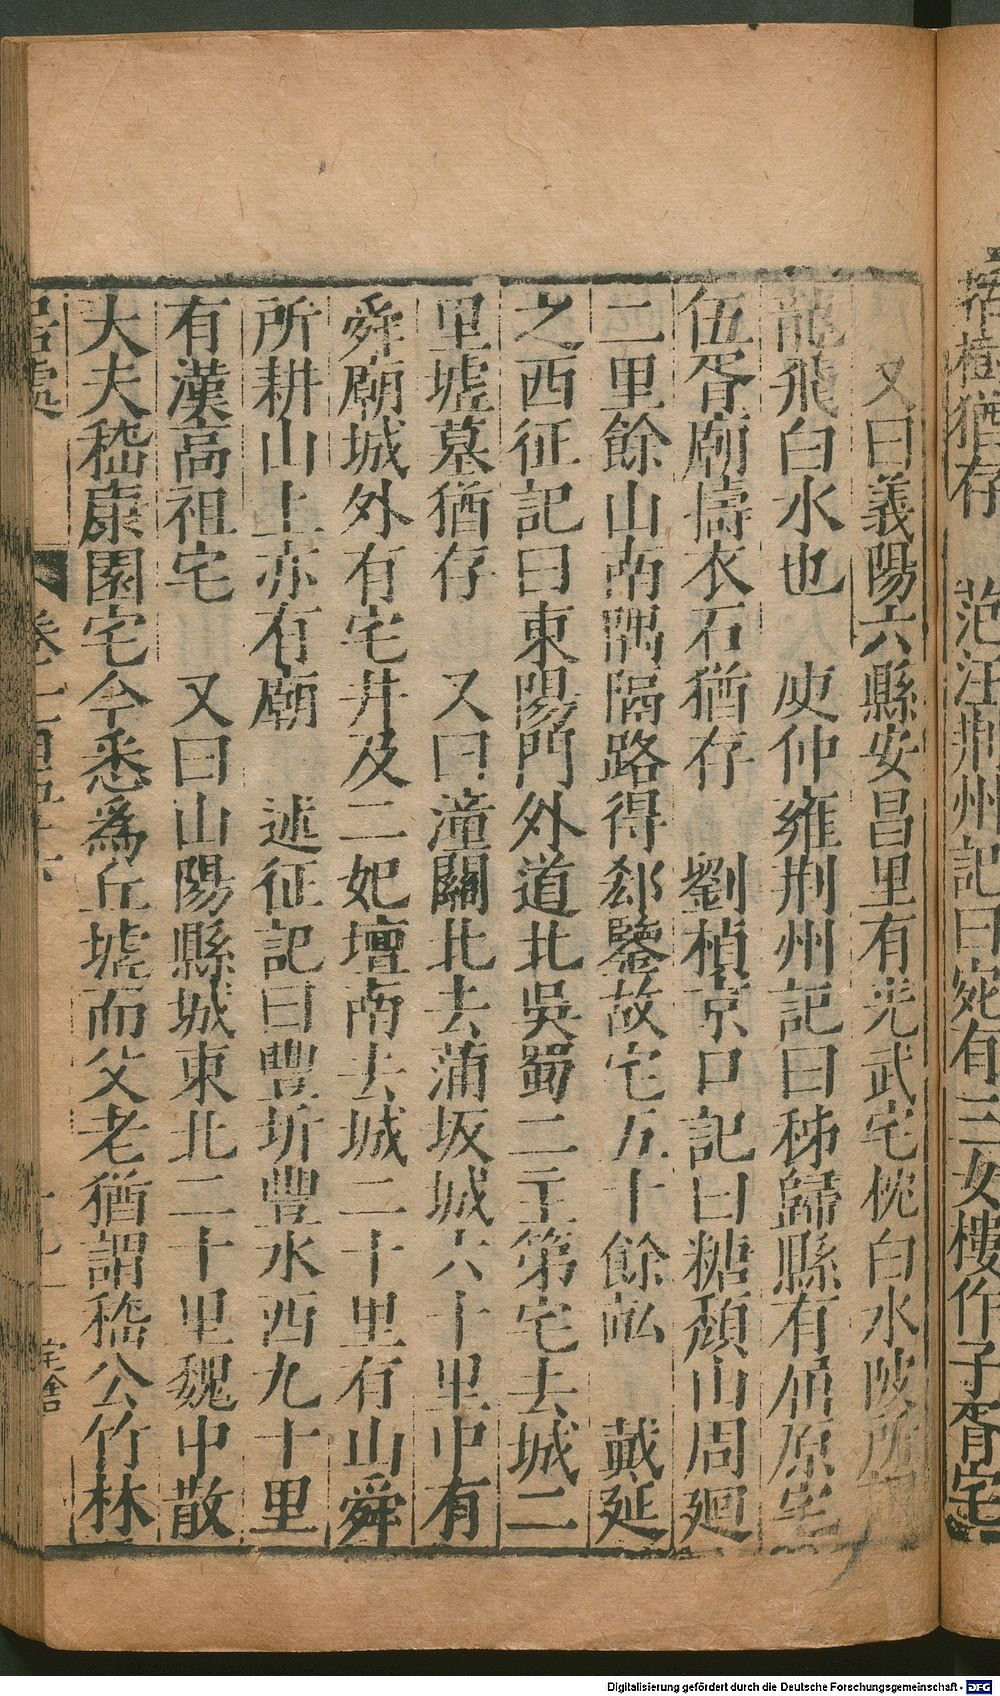 猶存　范汪荊州記曰宛有三女樓作子胥宅
又曰義陽六縣安昌里有光武宅枕白水陂所謂
龍飛白水也　庾仲雍荊州記曰秭歸縣有屈原宅
伍胥廟擣衣石猶存　劉楨京口記曰糖頹山周廻
二里餘山南隅隔路得郄鑒故宅五十餘畝　戴延
之西征記曰東陽門外道北吳蜀二主第宅去城二
里墟墓猶存　又曰潼關北去蒲坂城六十里中有
舜廟城外有宅井及二妃壇南去城二十里有山舜
所耕山上亦有廟　述征記曰豐圻豐水西九十里
有漢高祖宅　又曰山陽縣城東北二十里魏中散
大夫嵇康園宅今悉爲丘墟而父老猶謂嵇公竹林
居處　卷　宅舍
Digitalisierung gefördert durch die Deutsche Forschungsgemeinschaft - DFG